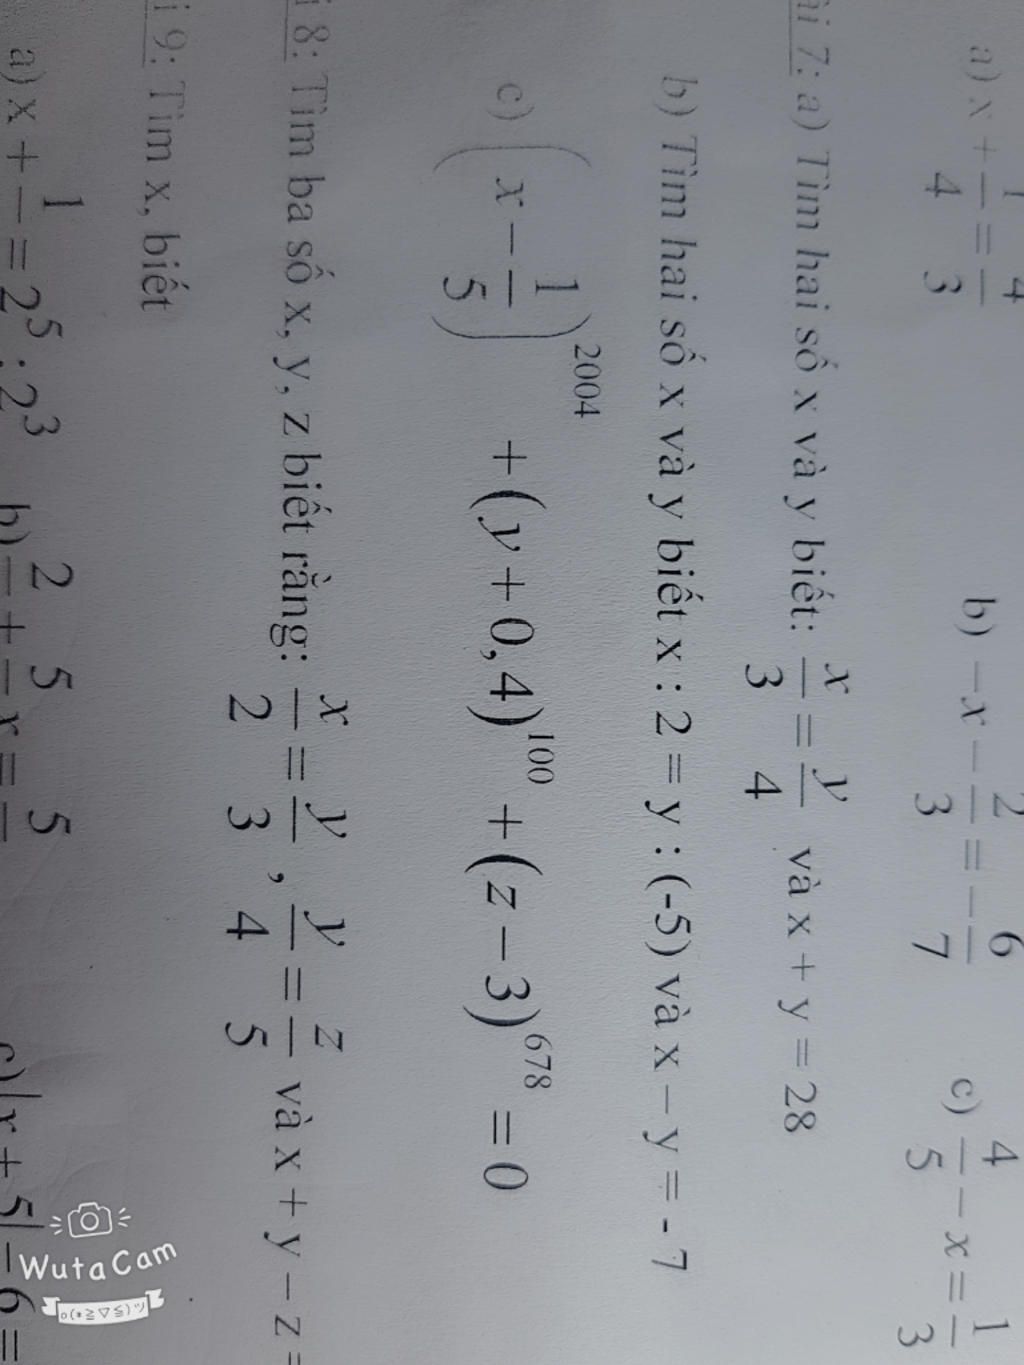 a) x + 1/4 = 4/3 b) −x − 2/3 = −6/7 c) 4/5 − x = 1/3
ài 7: a) Tìm hai số x và y biết: x/3 = y/4 và x + y = 28
b) Tìm hai số x và y biết x : 2 = y : (-5) và x – y = - 7
c) (x − 1/5)^2004 + (y + 0,4)^100 + (z − 3)^678 = 0
i 8: Tìm ba số x, y, z biết rằng: x/2 = y/3, y/4 = z/5 và x + y – z =
i 9: Tìm x, biết
a) x + 1 = 2^5 : 2^3 b) 2 + 5 x = 5 c) |x + 5| − 6 =
WutaCam
o(*≧▽≦)ツ